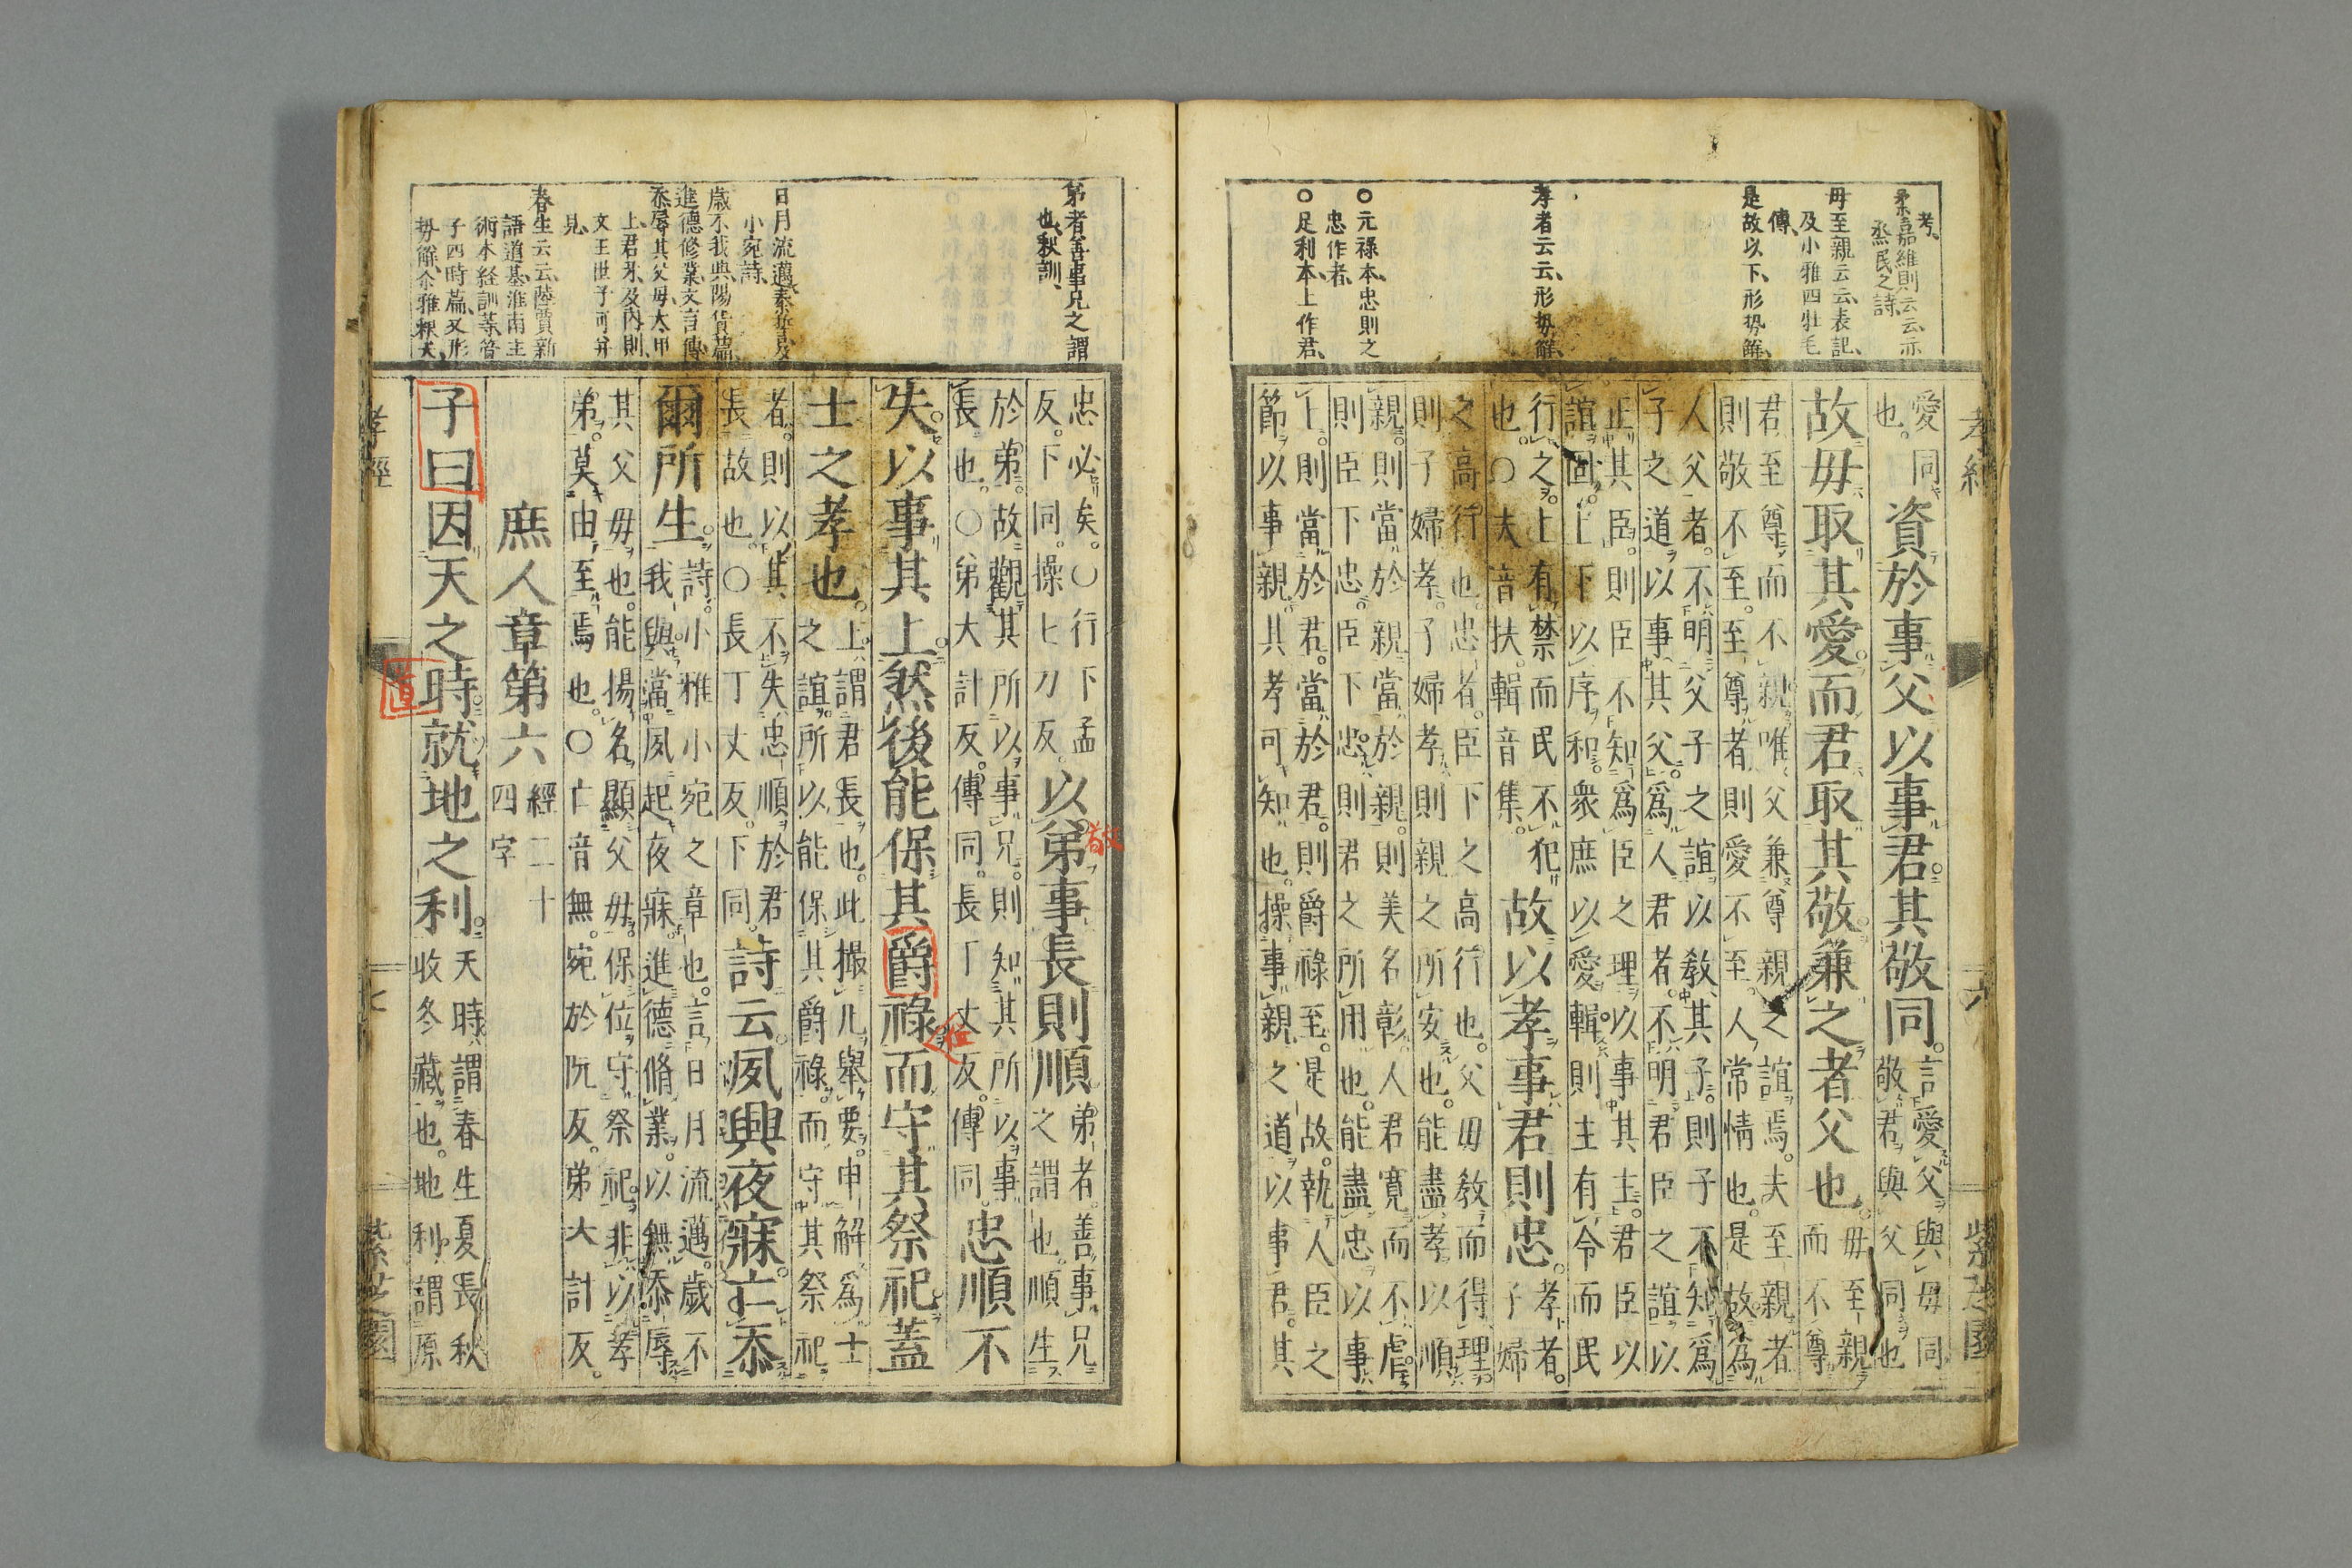 考。
柔嘉維則云云、亦
烝民之詩、
毋至親云云、表記、
及小雅四牡毛
傳、
是故以下、形勢解、
孝者云云、形勢解、
○元祿本、忠則之
忠作者、
○足利本上作君、
孝經
六
紫芝園
愛同
也。
資於事父以事君。其敬同。
言愛父與毋同
敬君與父同也
故毋取其愛。而君取其敬。兼之者父也。
毋至親
而不尊
君至尊而不親。唯父兼尊親之誼焉。夫至親者
則敬不至。至尊者則愛不至。人常情也。是故為
人父者。不明父子之誼以教其子。則子不知為
子之道以事其父。為人君者。不明君臣之誼以
正其臣。則臣不知為臣之理以事其主。君臣以
誼固。上下以序和。衆庶以愛輯。則主有令而民
行之。上有禁而民不犯
也。○夫音扶。輯音集。
故以孝事君則忠。
孝者。
子婦
之高行也。忠者。臣下之高行也。父毋教而得理。
則子婦孝。子婦孝。則親之所安也。能盡孝以順
親。則當於親。當於親。則美名彰。人君寛而不虐。
則臣下忠。臣下忠。則君之所用也。能盡忠以事
上。則當於君。當於君。則爵祿至。是故。執人臣之
節以事親。其孝可知也。操事親之道以事君。其
弟者善事兄之謂
也、秋訓、
日月流邁、泰誓、及
小宛詩、
歳不我與、陽貨篇、
進德修業、文言傳、
忝辱其父毋、太甲
上、君牙、及內則、
文王世子可并
見、
春生云云、陸賈新
語道基、淮南主
術、本経訓等、管
子四時篇、又形
勢解、尒雅釈天、
忠必矣。○行下孟
反。下同。操七刀反。
以弟事長則順
弟者。善事兄
之謂也。順生
敬
於弟。故觀其所以事兄。則知其所以事
長也。○弟大計反。傳同。長丁丈反。傳同。
忠順不
失。以事其上。然後能保其爵祿而守其祭祀。蓋
士之孝也。
上謂君長也。此撮凡舉要。申解為士
之誼。所以能保其爵祿。而守其祭祀
者。則以其不失忠順於君
長故也。○長丁丈反。下同。
詩云。夙興夜寐。亡忝
爾所生。
詩。小雅小宛之章也。言日月流邁。歲不
我與。當夙起夜寐。進德脩業。以無忝辱
其父毋也。能揚名顯父毋。保位守祭祀。非以孝
弟。莫由至焉也。○亡音無。宛於阮反。弟大計反。
庶人章第六
經二十
四字
子曰因天之時。就地之利。
天時。謂春生夏長秋
收冬藏也。地利。謂原
孝經
七
紫芝園